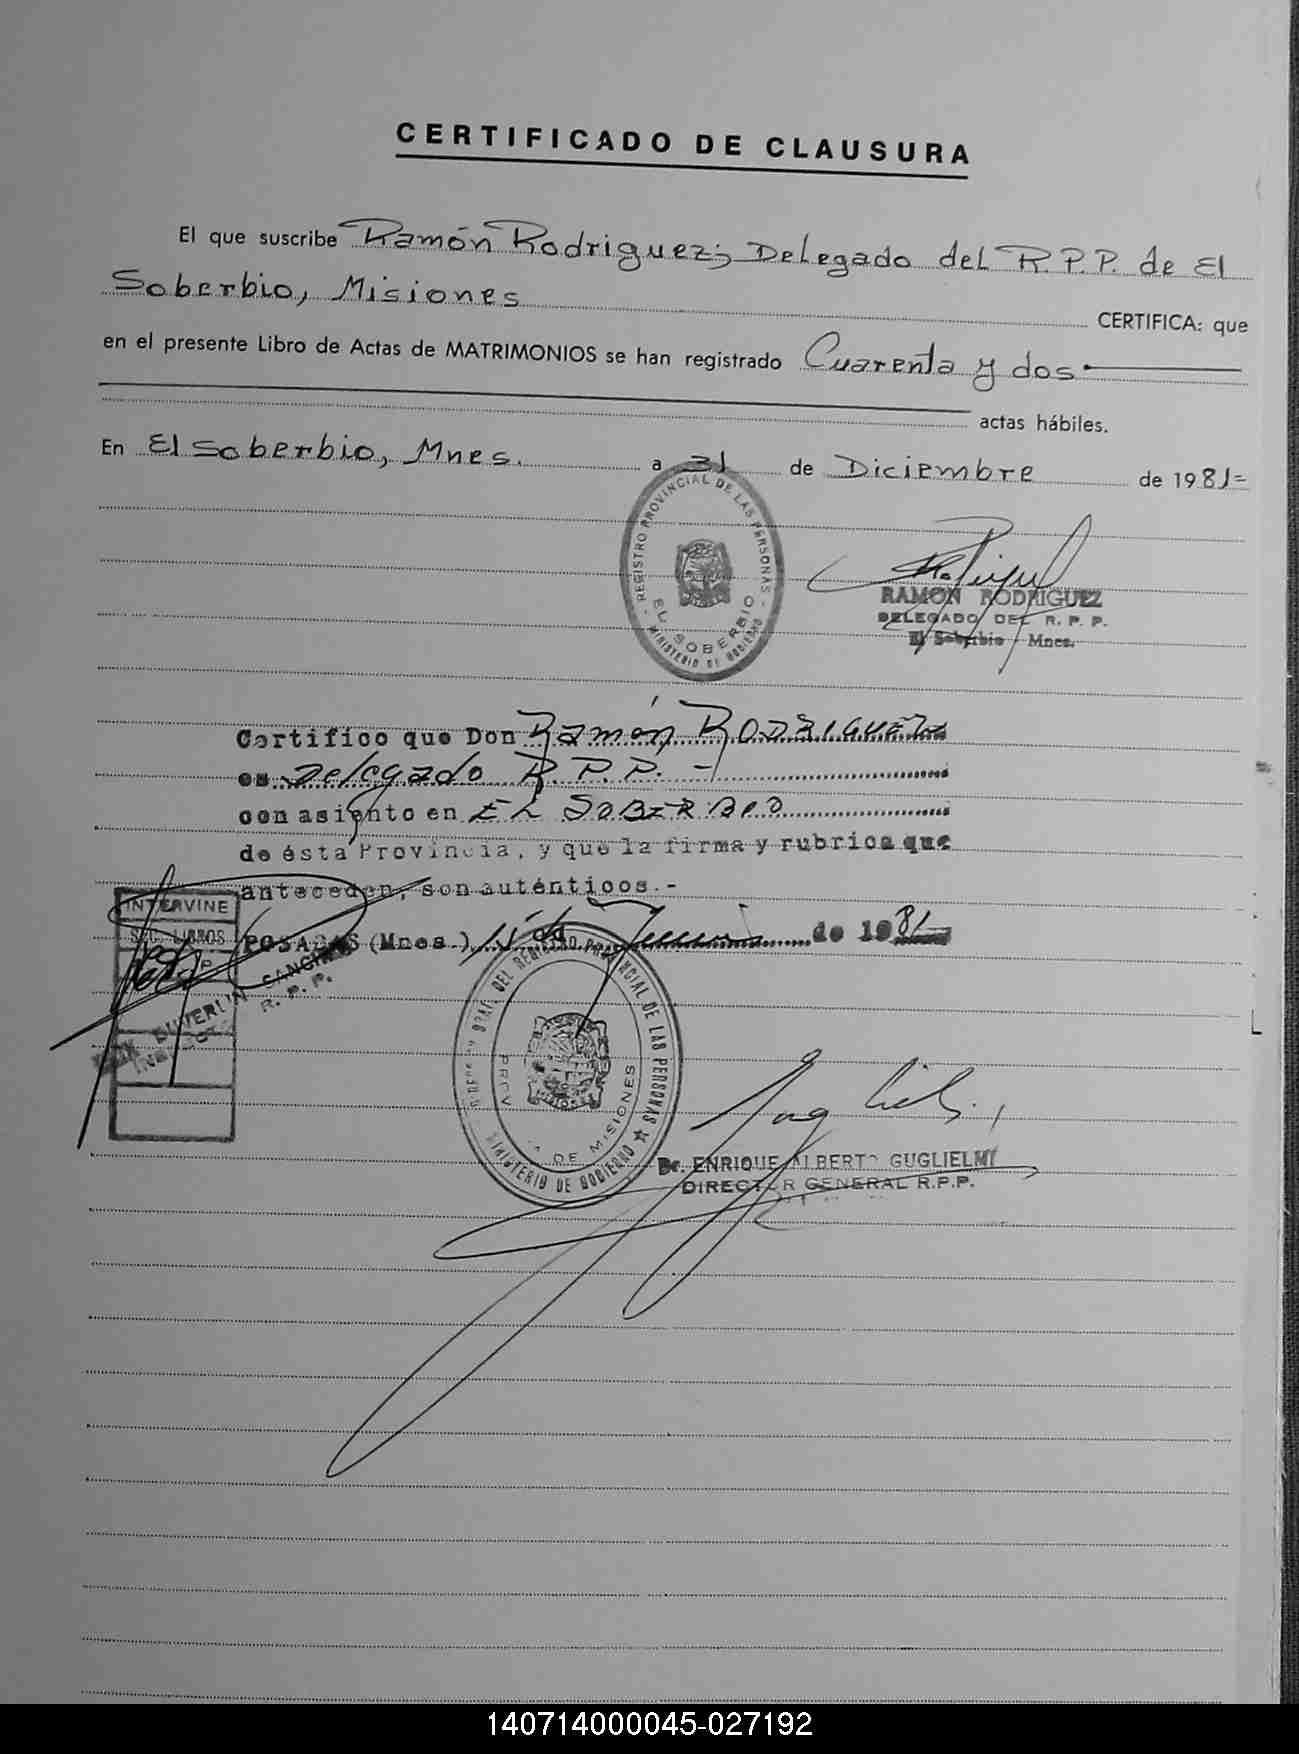 CERTIFICADO DE CLAUSURA
El que suscribe Ramón Rodriguez; Delegado del R.P.P. de El
Soberbio, Misiones CERTIFICA: que
en el presente Libro de Actas de MATRIMONIOS se han registrado Cuarenta y dos
actas hábiles.
En El Soberbio, Mnes. a 31 de Diciembre de 1981=
REGISTRO PROVINCIAL DE LAS PERSONAS
EL SOBERBIO
MINISTERIO DE GOBIERNO
RAMON RODRIGUEZ
DELEGADO DEL R. P. P.
El Soberbio - Mnes.
Certifico que Don Ramón RODRIGUEZ
es Delegado R.P.P. -
con asiento en EL SOBERBIO
de ésta Provincia, y que la firma y rubrica que
anteceden, son auténticos.-
INTERVINE
SEC. LIBROS
POSADAS (Mnes.) de 1981
R. P. P.
GRAL. DEL REGISTRO PROVINCIAL DE LAS PERSONAS
PROV DE MISIONES
MINISTERIO DE GOBIERNO
Dr. ENRIQUE ALBERTO GUGLIELMI
DIRECTOR GENERAL R.P.P.
140714000045-027192